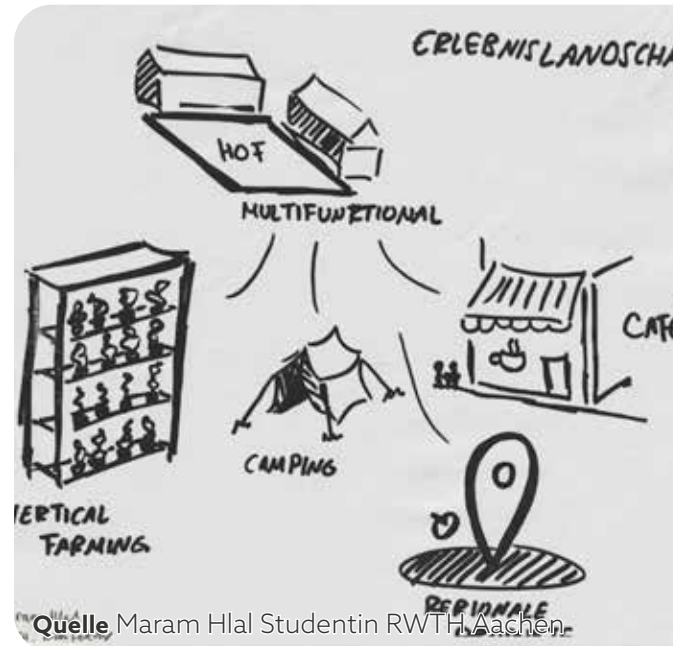 ERLEBNISLANDSCHA
HOF
MULTIFUNKTIONAL
CAFE
CAMPING
VERTICAL
FARMING
REGIONALE
Quelle Maram Hlal Studentin RWTH Aachen